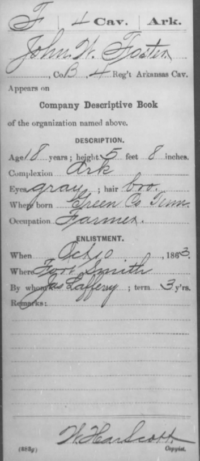 F 4 Cav. Ark.
John W. Foster
, Co. B, 4 Reg't Arkansas Cav.
Appears on
Company Descriptive Book
of the organization named above.
DESCRIPTION.
Age 18 years; height 5 feet 8 inches.
Complexion
Eyes gray; hair bro.
Where born Green Co Tenn.
Occupation Farmer.
ENLISTMENT.
When Oct 1863.
Where Fort Smith
By whom Jas Laffery; term 3 y'rs.
Remarks:
Copyist.